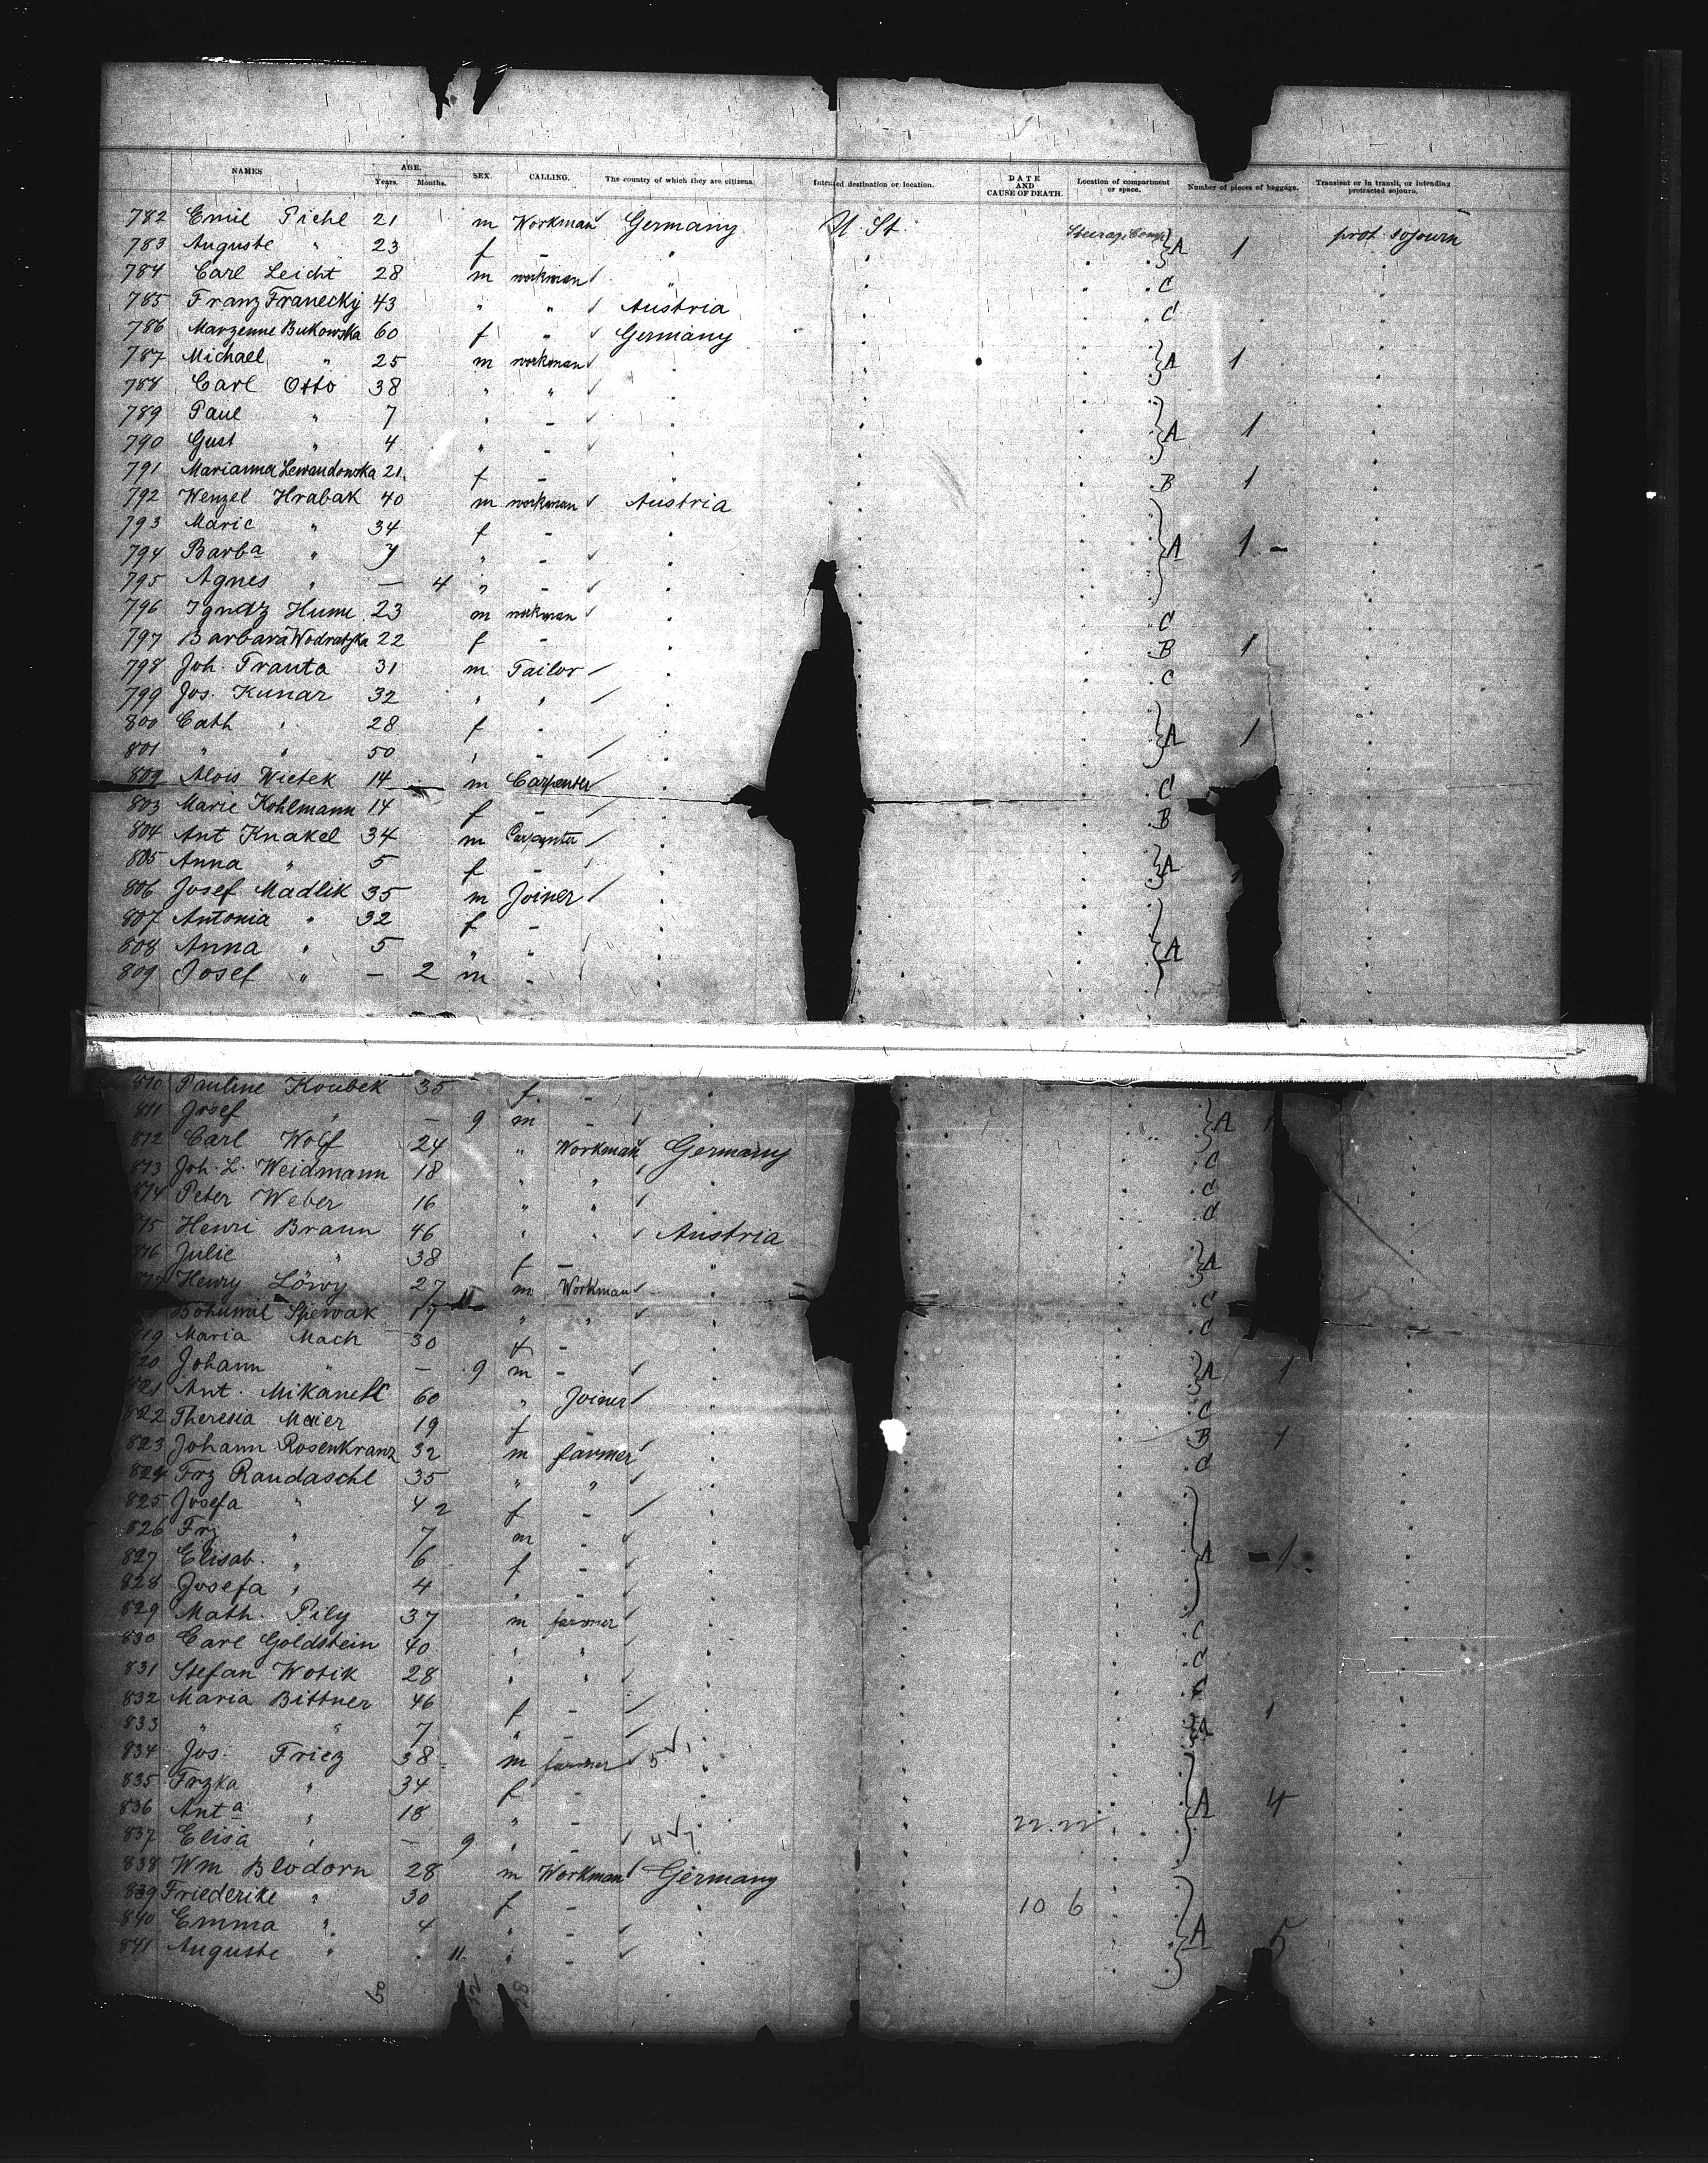 NAMES AGE. Years. Months. SEX. CALLING. The country of which they are citizens. Intended destination or location. DATE AND CAUSE OF DEATH. Location of compartment or space. Number of pieces of baggage. Transient or in transit, or intending protracted sojourn.
782 Emil Piehl 21 m Workman Germany U. St. Steerage Comp prot. sojourn
783 Auguste " 23 f - " A 1
784 Carl Leicht 28 m workman " C
785 Franz Franecky 43 " " Austria C
786 Marzenne Bukowska 60 f " Germany
787 Michael " 25 m workman A 1
788 Carl Otto 38 " "
789 Paul " 7 " - A 1
790 Gust " 4 " -
791 Marianna Lewandowska 21 f - B 1
792 Wenzel Hrabak 40 m workman Austria
793 Marie " 34 f -
794 Barba " 7 " - A 1 -
795 Agnes " - 4 " -
796 Ignatz Hume 23 m workman C
797 Barbara Wodratzka 22 f - B 1
798 Joh. Tranta 31 m Tailor C
799 Jos. Kunar 32 " "
800 Cath " 28 f - A 1
801 " " 50 " -
802 Alois Wietek 14 m Carpenter C
803 Marie Kohlmann 14 f - B
804 Ant Knakel 34 m Carpenter
805 Anna " 5 f - A
806 Josef Madlik 35 m Joiner
807 Antonia " 32 f -
808 Anna " 5 " " A
809 Josef " - 2 m -
810 Pauline Koubek 35 f. - "
811 Josef " - 9 m - A 1
812 Carl Wolf 24 " Workman Germany
813 Joh. L. Weidmann 18 " " C
814 Peter Weber 16 " " C
815 Henri Braun 46 " " Austria
816 Julie " 38 f - " A
817 Henry Löwy 27 m Workman C
Bohumil Spewak 17 " " C
819 Maria Mach 30 f -
820 Johann " - 9 m - A 1
821 Ant. 60 " Joiner C
822 Theresia Maier 19 f - B 1
823 Johann Rosenkranz 32 m farmer C
824 Frz Randaschl 35 " "
825 Josefa " 42 f -
826 Frz " 7 m -
827 Elisab. " 6 f - A 1
828 Josefa " 4 " -
829 Math. Pily 37 m farmer C
830 Carl Goldstein 40 " " C
831 Stefan Wotik 28 " " C
832 Maria Bittner 46 f - 1
833 " " 7 " - A
834 Jos. Friez 38 m farmer 5
835 Frzka " 34 f -
836 Anta " 18 " - 22.22 A 4
837 Elisa " - 9 " - 4
838 Wm Blodorn 28 m Workman Germany
839 Friederike " 30 f - 10 6
840 Emma " 4 " - A 5
841 Auguste " . 11. " -